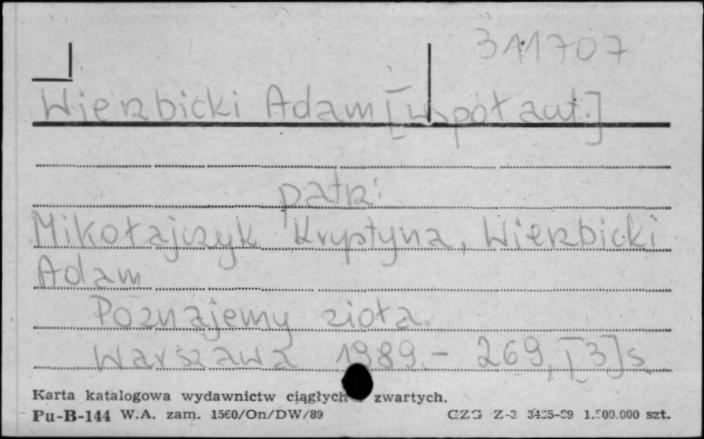 311707
Wierzbicki Adam [współaut.]
patrz:
Mikołajczyk Krystyna, Wierzbicki
Adam
Poznajemy zioła.
Warszawa 1989.- 269, [3] s.
Karta katalogowa wydawnictw ciągłych zwartych.
Pu-B-144 W.A. zam. 1560/On/DW/89 CZG Z-3 3435-89 1.500.000 szt.